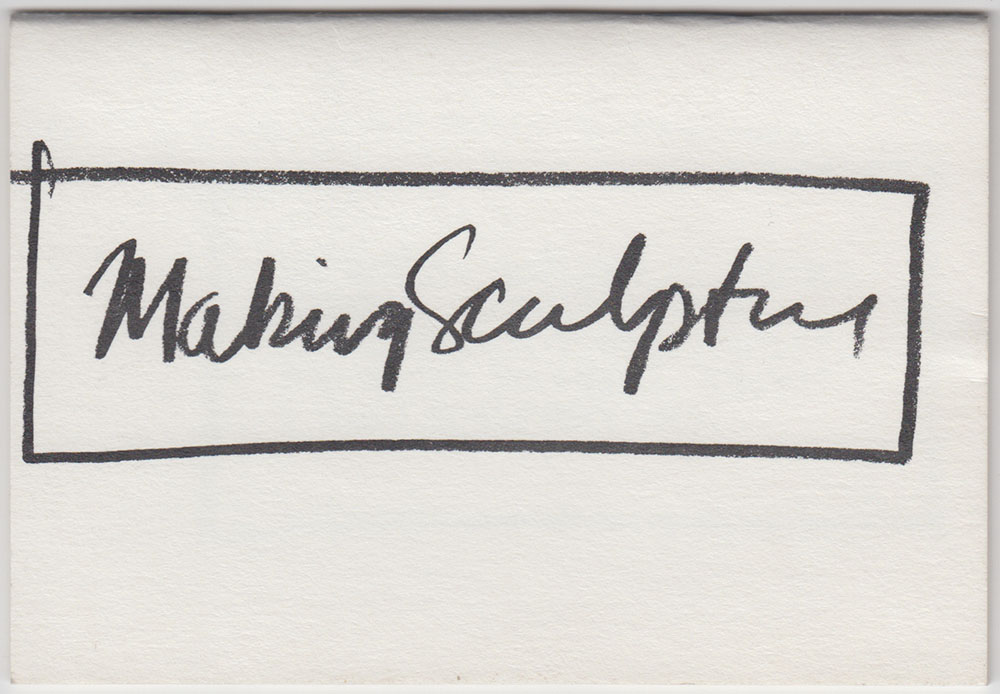 Making Sculpture